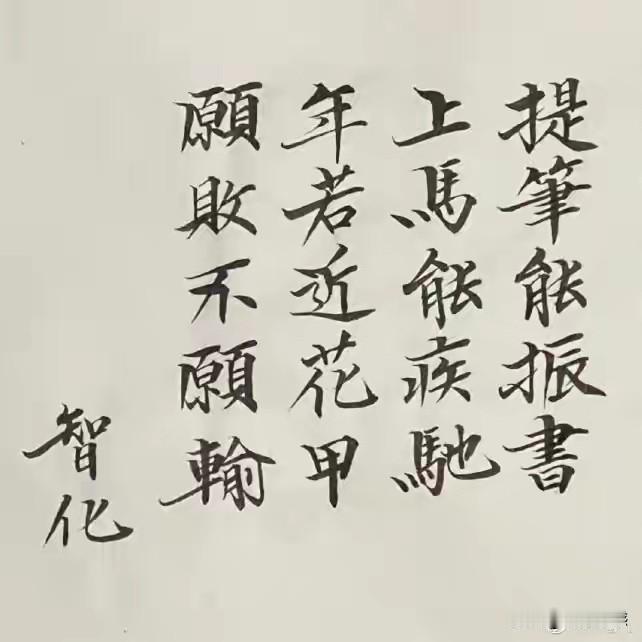 提筆能振書
上馬能疾馳
年若近花甲
願敗不願輸
智化